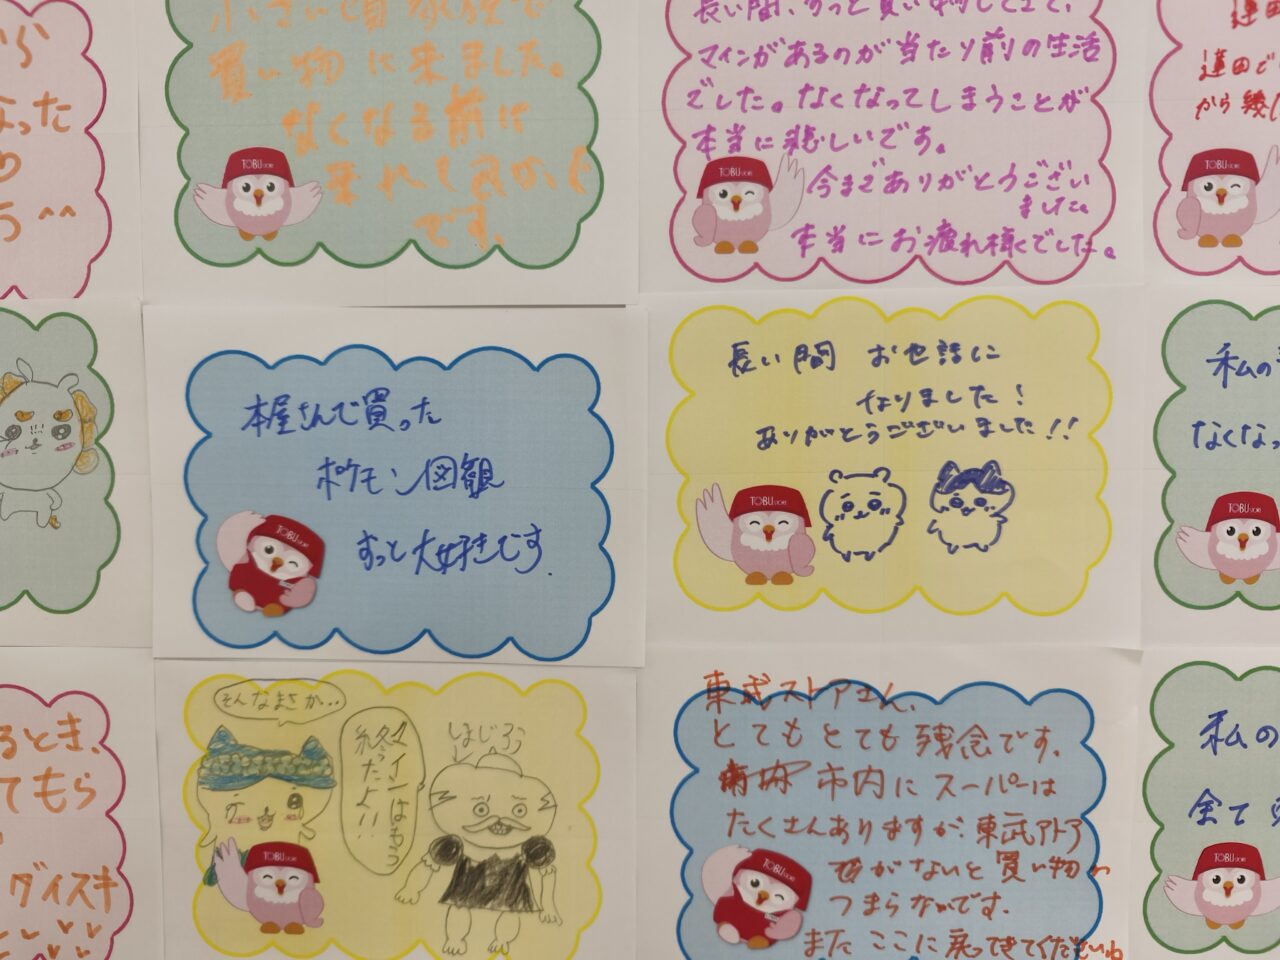 から
なった
う^^
小さい頃家族で
買い物に来ました。
なくなる前に
来れて良かった
です。
TOBU STORE
長い間、ずっと買い物してきて、
マインがあるのが当たり前の生活
でした。なくなってしまうことが
本当に悲しいです。
今までありがとうござい
ました
本当にお疲れ様でした。
TOBU STORE
蓮田
蓮田で
から幾
TOBU STORE
本屋さんで買った
ポケモン図鑑
ずっと大好きです.
TOBU STORE
長い間 お世話に
なりました!
ありがとうございました!!
TOBU STORE
私の
なくなっ
TOBU STORE
るとき、
てもら
ダイスキ
そんなまさか..
マインはもう
終ったよ!!
しまじろう
TOBU STORE
東武ストアさん、
とてもとても残念です。
市内にスーパーは
たくさんありますが、東武ストア
がないと買い物
つまらなかです。
またここに戻ってきてくださいね
TOBU STORE
私の
全て
TOBU STORE